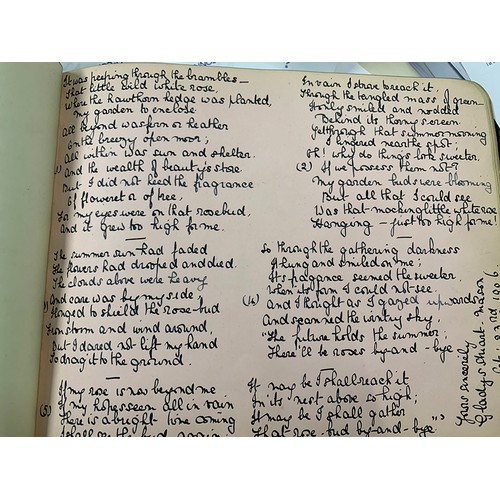 It was peeping through the brambles —
That little wild white rose,
Where the hawthorn hedge was planted,
My garden to enclose
All beyond was fern or heather
On the breezy open moor;
All within was sun and shelter
(1) And the wealth of beauty's store
But I did not heed the fragrance
Of floweret or of tree,
For my eyes were on that rosebud,
And it grew too high for me.
In vain I strove to reach it,
Through the tangled mass of green
It only smiled and nodded
Behind its thorny screen
Yet through that summer morning
I lingered near the spot;
Oh! why do things look sweeter
(2) If we possess them not?
My garden buds were blooming
But all that I could see
Was that mocking little white rose
Hanging — just too high for me!
The summer sun had faded
The flowers had drooped and died.
The clouds above were heavy
And care was by my side,
I longed to shield the rose-bud
From storm and wind around,
But I dared not lift my hand
To drag it to the ground.
So through the gathering darkness
It hung and smiled on me;
Its fragance seemed the sweeter
When its form I could not see.
And I thought as I gazed upwards
And scanned the wintry sky
"The future holds the summer;
There'll be roses by-and-bye.
If my rose is now beyond me
If my hopes seem all in vain
(5) There is a bright time coming
I shall see the bud again;
It may be I shall reach it
In its nest above so high;
It may be I shall gather
That rose-bud by-and-bye."
Yours sincerely
Gladys Stuart-Mason